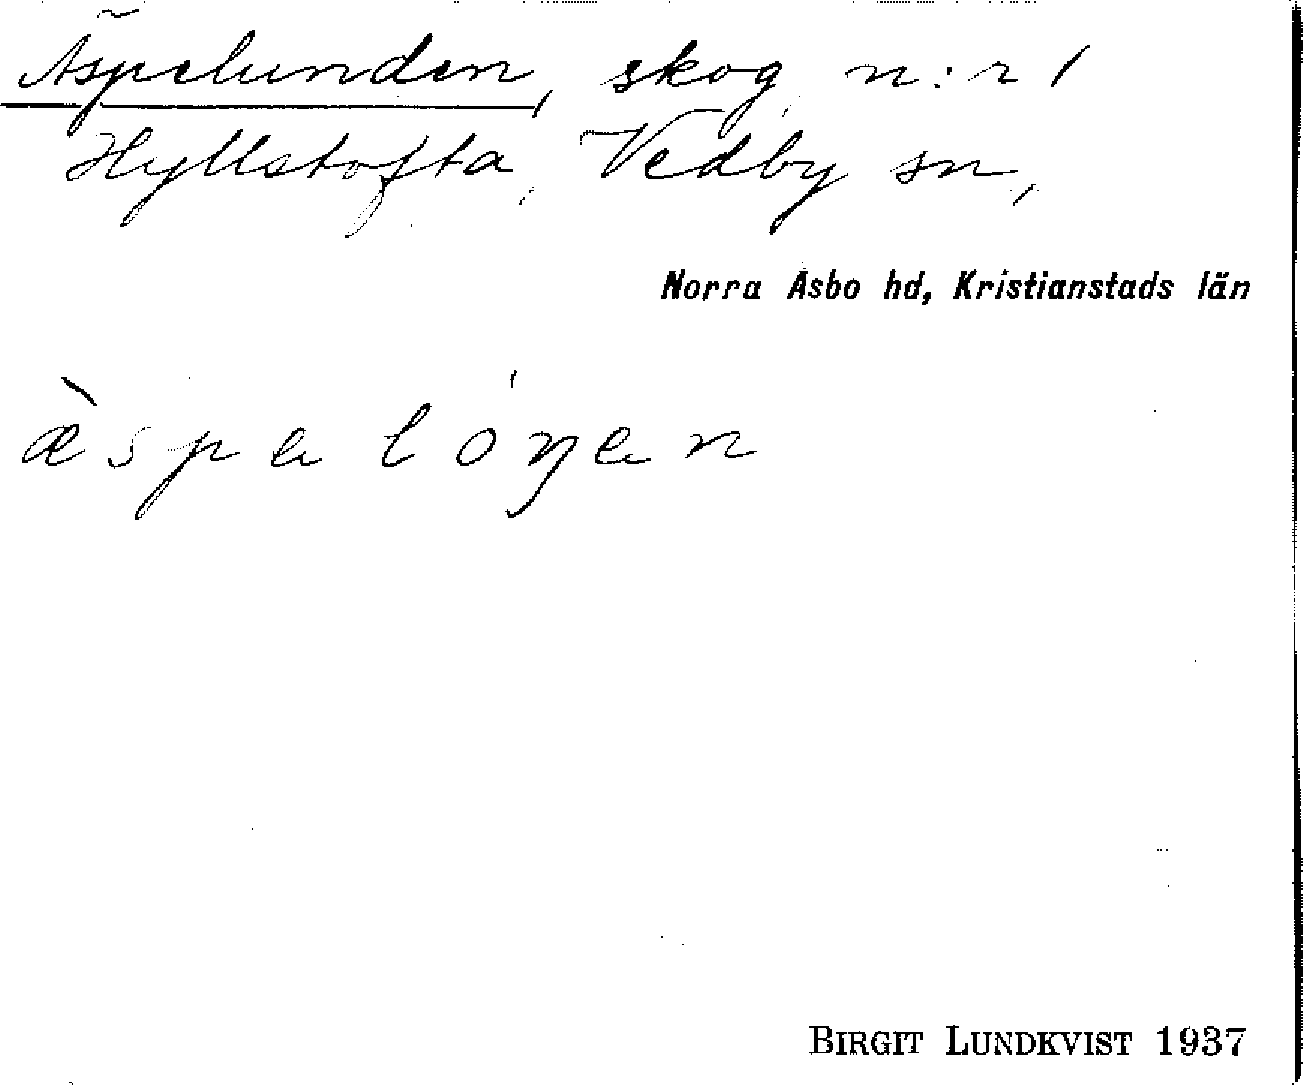 Äspelunden, skog, n:r 1
Hyllstofta, Vedby sn,
Norra Åsbo hd, Kristianstads län
æ̀spalóŋan
BIRGIT LUNDKVIST 1937